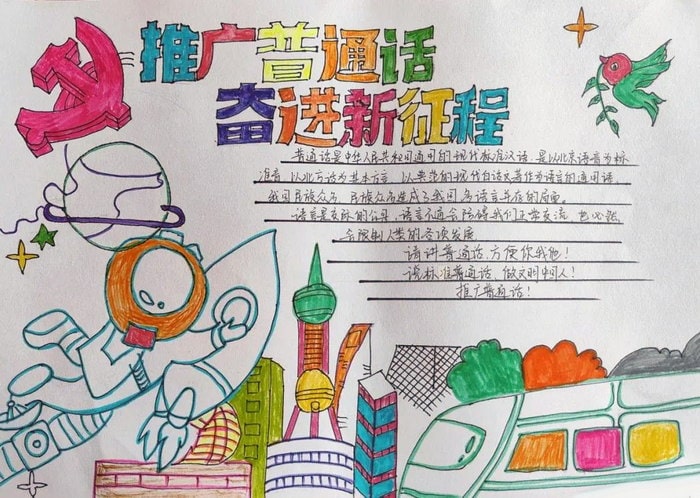 推广普通话
奋进新征程
普通话是中华人民共和国通用的现代标准汉语，是以北京语音为标
准音，以北方话为基本方言，以典范的现代白话文著作为语言的通用语。
我国民族众多，民族众多造成了我国多语言并存的局面。
语言是交际的公具，语言不通会阻碍我们正常交流，也必然
会限制人类的各项发展
请讲普通话，方便你我他！
说标准普通话，做文明中国人！
推广普通话！